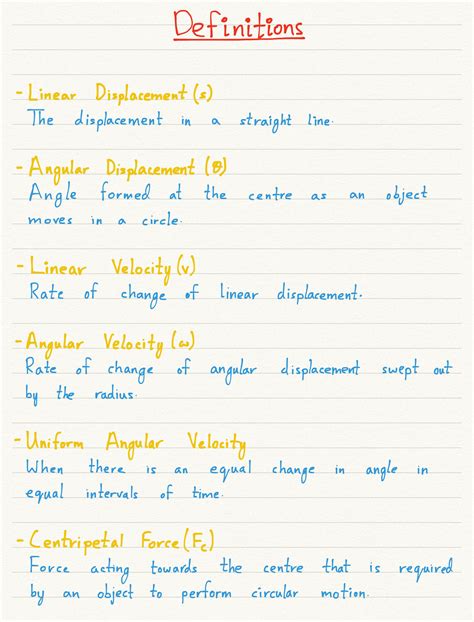 Definitions
- Linear Displacement (s)
The displacement in a straight line.
- Angular Displacement (θ)
Angle formed at the centre as an object
moves in a circle.
- Linear Velocity (v)
Rate of change of linear displacement.
- Angular Velocity (ω)
Rate of change of angular displacement swept out
by the radius.
- Uniform Angular Velocity
When there is an equal change in angle in
equal intervals of time.
- Centripetal Force (Fc)
Force acting towards the centre that is required
by an object to perform circular motion.